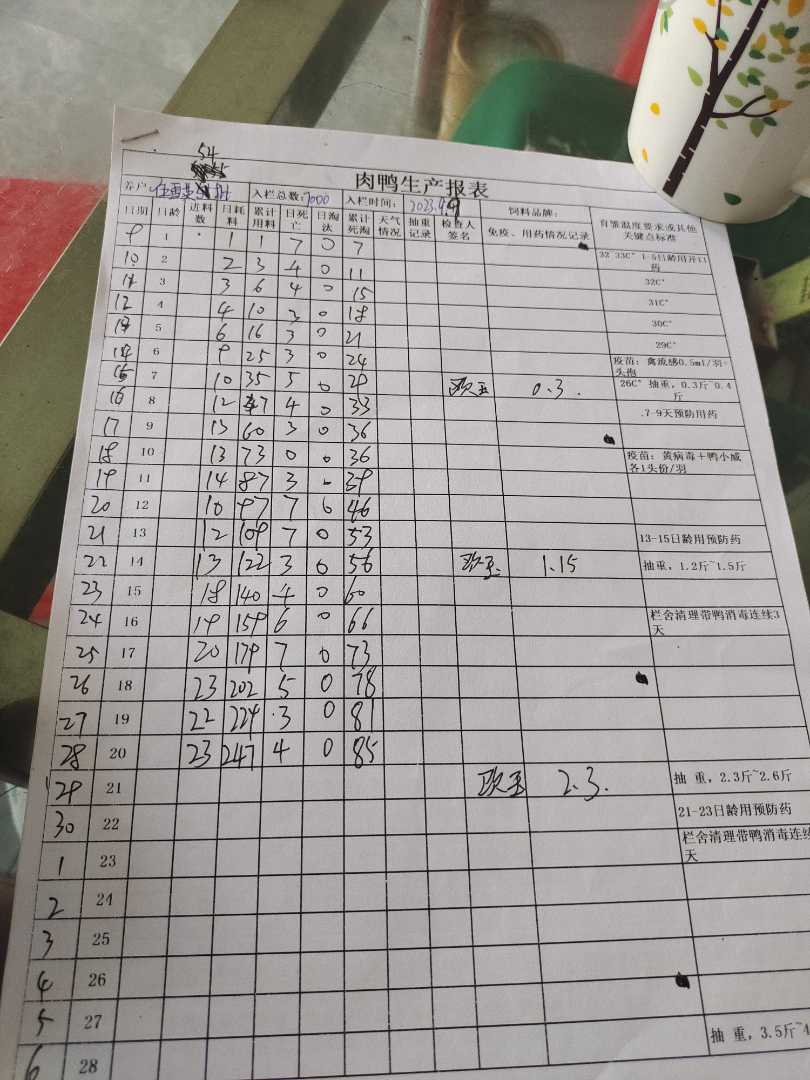 54
肉鸭生产报表
养户 入栏总数:7000 入栏时间: 2023.9.9 饲料品牌: 育雏温度要求或其他关键点标准
日期 日龄 进料数 日耗料 累计用料 日死亡 日淘汰 累计死淘 天气情况 抽重记录 检查人签名 免疫、用药情况记录
9 1 1 1 7 0 7 32-33C° 1-5日龄用开口药
10 2 2 3 4 0 11
11 3 3 6 4 0 15 32C°
12 4 4 10 3 0 18 31C°
13 5 6 16 3 0 21 30C°
14 6 9 25 3 0 24 29C°
疫苗:禽流感0.5ml/羽·头孢
15 7 10 35 5 0 29 欧玉 0.3. 26C° 抽重,0.3斤~0.4斤
16 8 12 47 4 0 33 .7-9天预防用药
17 9 13 60 3 0 36
18 10 13 73 0 0 36 疫苗:黄病毒+鸭小威各1头份/羽
19 11 14 87 3 0 39
20 12 10 97 7 0 46
21 13 12 109 7 0 53 13-15日龄用预防药
22 14 13 122 3 0 56 欧玉 1.15 抽重,1.2斤~1.5斤
23 15 18 140 4 0 60
24 16 19 159 6 0 66 栏舍清理带鸭消毒连续3天
25 17 20 179 7 0 73
26 18 23 202 5 0 78
27 19 22 224 3 0 81
28 20 23 247 4 0 85
29 21 欧玉 2.3. 抽 重,2.3斤~2.6斤
30 22 21-23日龄用预防药
1 23 栏舍清理带鸭消毒连续天
2 24
3 25
4 26
5 27
6 28 抽 重,3.5斤~4